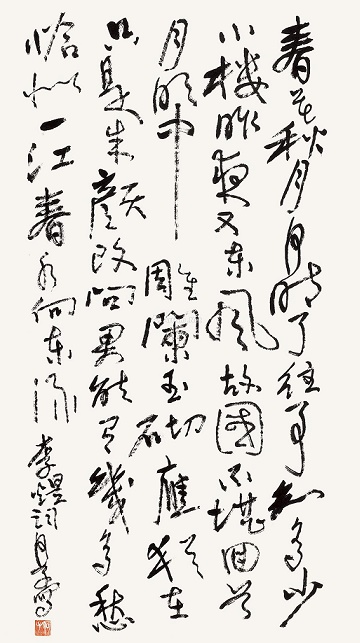 春花秋月何時了往事知多少
小楼昨夜又東風故國不堪回首
月明中雕闌玉砌應猶在
只是朱顏改問君能有幾多愁
恰似一江春水向東流
李煜詞